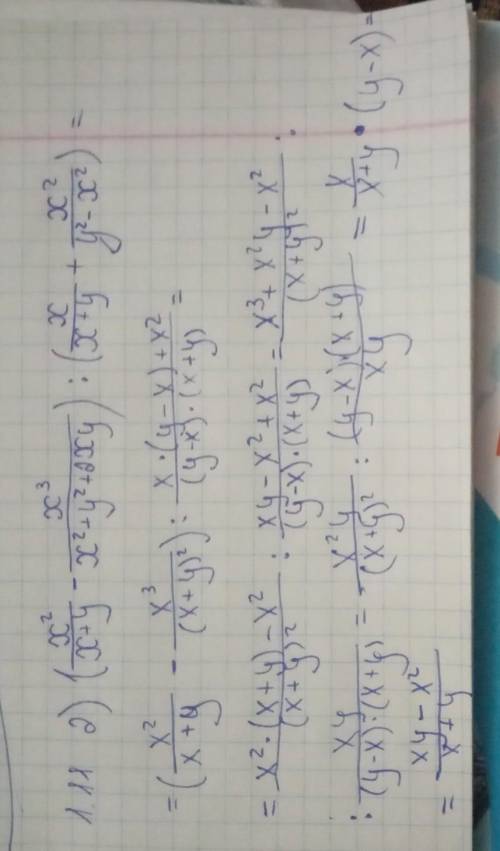 1.11 2) (x²/(x+y) - x³/(x²+y²+2xy)) : (x/(x+y) + x²/(y²-x²)) =
= (x²/(x+y) - x³/(x+y)²) : (x·(y-x)+x²)/((y-x)·(x+y)) =
= (x²·(x+y)-x²)/(x+y)² : (xy-x²+x²)/((y-x)·(x+y)) = (x³+x²y-x²)/(x+y)² :
: xy/((y-x)·(x+y)) = x²y/(x+y)² : (y-x)·(x+y)/xy = x/(x+y) · (y-x) =
= (xy-x²)/(x+y)